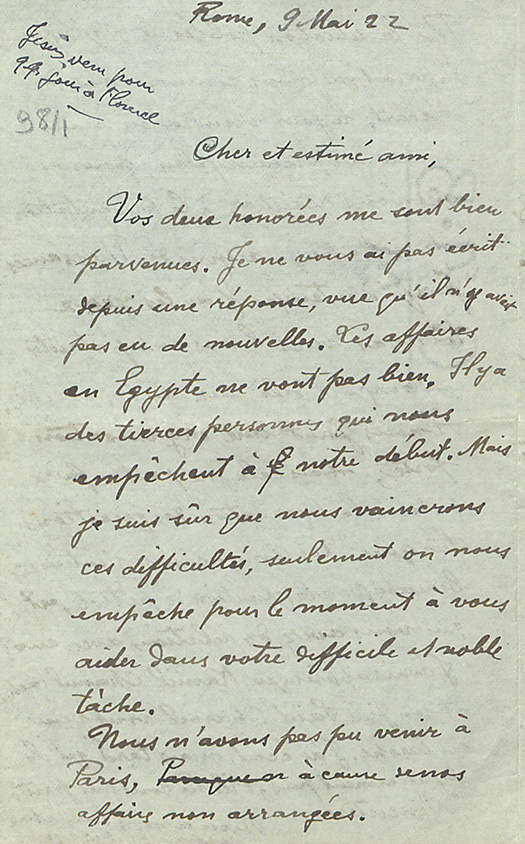 Rome, 9 Mai 22
pour
à Florence
98/1
Cher et estimé ami,
Vos deux honorées me sont bien
parvenues. Je ne vous ai pas écrit
depuis une réponse, vue qu'il n'y avait
pas eu de nouvelles. Les affaires
en Egypte ne vont pas bien. Il y a
des tierces personnes qui nous
empêchent à notre début. Mais
je suis sûr que nous vaincrons
ces difficultés, seulement on nous
empâche pour le moment à vous
aider dans votre difficile et noble
tâche.
Nous n'avons pas pu venir à
Paris, à cause de nos
affaire non arrangées.